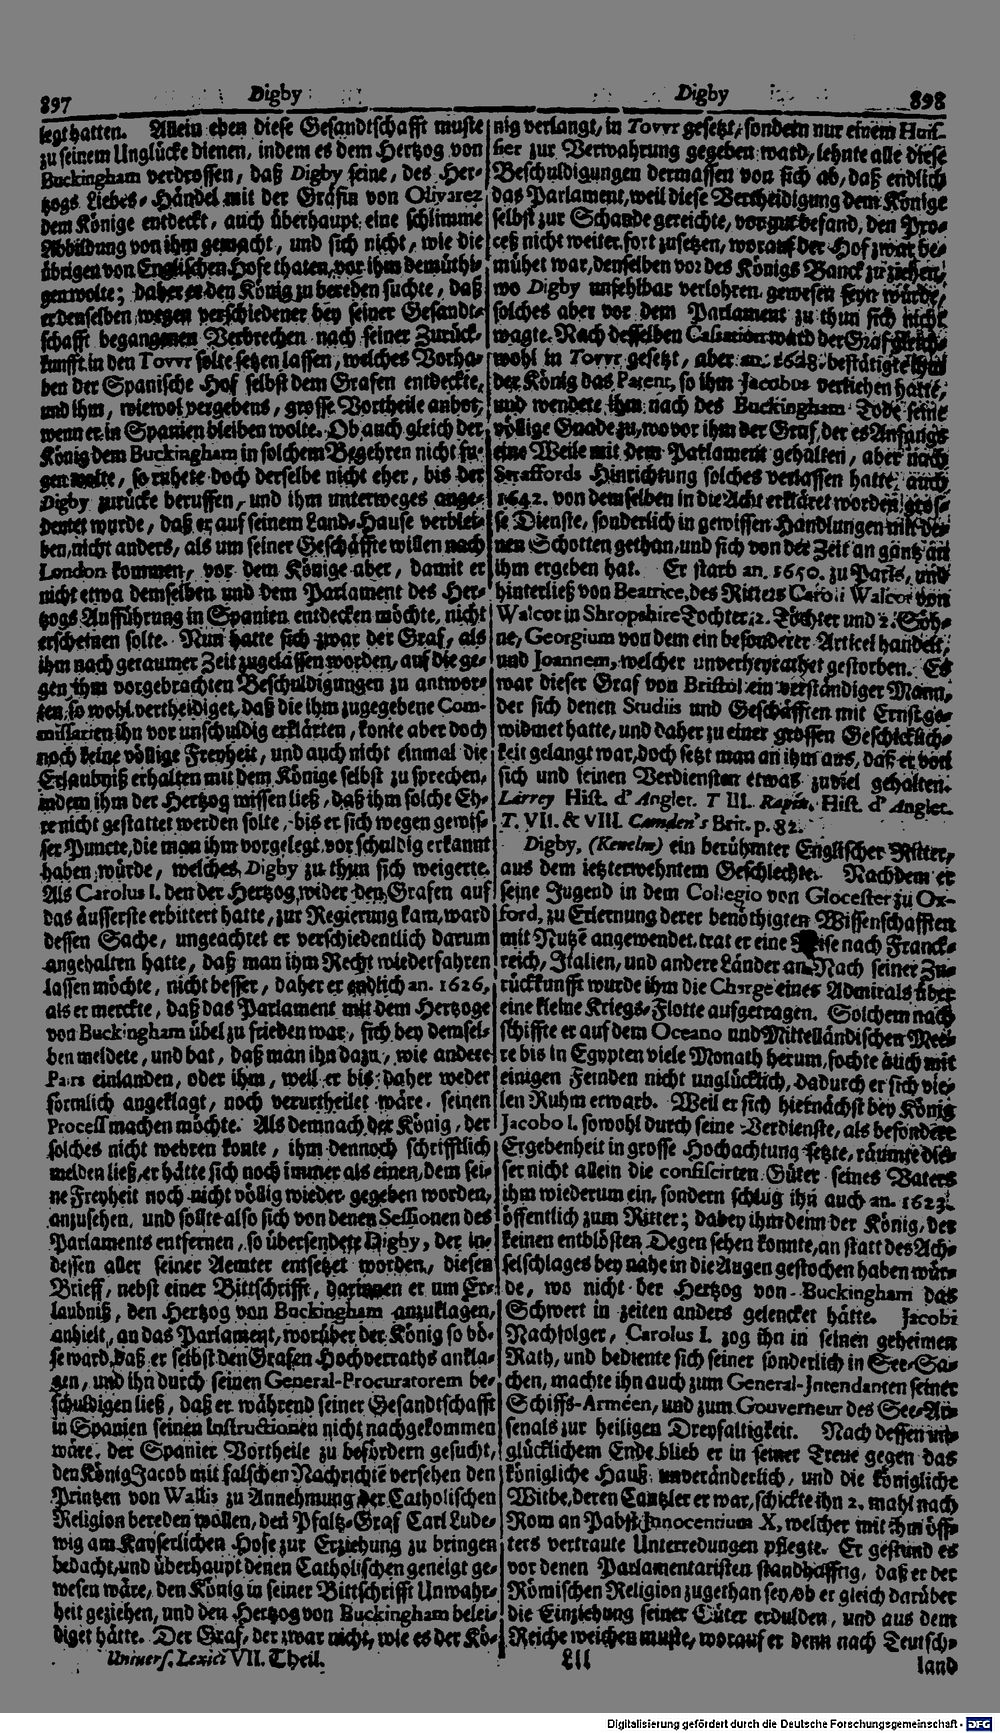 897 Digby
Digby 898
legt hatten. Allein eben diese Gesandtschafft muste
zu seinem Unglücke dienen, indem es dem Hertzog von
Buckingham verdrossen, daß Digby seine, des Her-
tzogs Liebes-Händel mit der Gräfin von Olivarez
dem Könige entdeckt, auch überhaupt eine schlimme
Abbildung von ihm gemacht, und sich nicht, wie die
übrigen von Englischen Hofe thaten, vor ihm demüthi-
gen wolte; daher er den König zu bereden suchte, daß
er denselben wegen verschiedener bey seiner Gesandt-
schafft begangenen Verbrechen nach seiner Zurück-
kunfft in den Tovvr solte setzen lassen, welches Vorha-
ben der Spanische Hof selbst dem Grafen entdeckte,
und ihm, wiewol vergebens, grosse Vortheile anbot,
wenn er in Spanien bleiben wolte. Ob auch gleich der
König dem Buckingham in solchem Begehren nicht fu-
gen wolte, so ruhete doch derselbe nicht eher, bis der
Digby zurücke beruffen, und ihm unterweges ange-
deutet wurde, daß er auf seinem Land-Hause verblei-
ben, nicht anders, als um seiner Geschäffte willen nach
London kommen, vor dem Könige aber, damit er
nicht etwa demselben und dem Parlament des Her-
tzogs Aufführung in Spanien entdecken möchte, nicht
erscheinen solte. Nun hatte sich zwar der Graf, als
ihm nach geraumer Zeit zugelassen worden, auf die ge-
gen ihm vorgebrachten Beschuldigungen zu antwor-
ten, so wohl vertheidiget, daß die ihm zugegebene Com-
missarien ihn vor unschuldig erklärten, konte aber doch
noch keine völlige Freyheit, und auch nicht einmal die
Erlaubniß erhalten mit dem Könige selbst zu sprechen,
indem ihm der Hertzog wissen ließ, daß ihm solche Eh-
re nicht gestattet werden solte, bis er sich wegen gewis-
ser Puncte, die man ihm vorgelegt, vor schuldig erkannt
haben würde, welches Digby zu thun sich weigerte.
Als Carolus I. den der Hertzog wider den Grafen auf
das äusserste erbittert hatte, zur Regierung kam, ward
dessen Sache, ungeachtet er verschiedentlich darum
angehalten hatte, daß man ihm Recht wiederfahren
lassen möchte, nicht besser, daher er endlich an. 1626,
als er merckte, daß das Parlament mit dem Hertzoge
von Buckingham übel zu frieden war, sich bey demsel-
ben meldete, und bat, daß man ihn dazu, wie andere
Pairs einlanden, oder ihm, weil er bis daher weder
förmlich angeklagt, noch verurtheilet wäre, seinen
Process machen möchte. Als demnach der König, der
solches nicht wehren konte, ihm dennoch schrifftlich
melden ließ, er hätte sich noch immer als einen, dem sei-
ne Freyheit noch nicht völlig wieder gegeben worden,
anzusehen, und sollte also sich von denen Sessionen des
Parlaments entfernen, so übersendete Digby, der in-
dessen aller seiner Aemter entsetzet worden, diesen
Brieff, nebst einer Bittschrifft, darinnen er um Er-
laubniß, den Hertzog von Buckingham anzuklagen,
anhielt, an das Parlament, worüber der König so bö-
se ward, daß er selbst den Grafen Hochverraths ankla-
gen, und ihn durch seinen General-Procuratorem be-
schuldigen ließ, daß er während seiner Gesandtschafft
in Spanien seinen Instructionen nicht nachgekommen
wäre, der Spanier Vortheile zu befördern gesucht,
den König Jacob mit falschen Nachrichtē versehen den
Printzen von Wallis zu Annehmung der Catholischen
Religion bereden wollen, den Pfaltz-Graf Carl Lude-
wig am Kayserlichen Hofe zur Erziehung zu bringen
bedacht, und überhaupt denen Catholischen geneigt ge-
wesen wäre, den König in seiner Bittschrifft Unwahr-
heit geziehen, und den Hertzog von Buckingham belei-
diget hätte. Der Graf, der zwar nicht, wie es der Kö-
Univers. Lexici VII. Theil.
nig verlangt, in Tovvr gesetzt, sondern nur einem Huis-
sier zur Verwahrung gegeben ward, lehnte alle diese
Beschuldigungen dermassen von sich ab, daß endlich
das Parlament, weil diese Vertheidigung dem Könige
selbst zur Schande gereichte, vor gut befand, den Pro-
ceß nicht weiter fort zusetzen, worauf der Hof zwar be-
mühet war, denselben vor des Königs Banck zu ziehen,
wo Digby unfehlbar verlohren gewesen seyn würde,
solches aber vor dem Parlament zu thun sich nicht
wagte. Nach desselben Cassation ward der Graf gleich-
wohl in Tovvr gesetzt, aber an. 1628. bestätigte ihm
der König das Patent, so ihm Jacobus verliehen hatte,
und wendete ihm nach des Buckingham Tode seine
völlige Gnade zu, wo vor ihm der Graf, der es Anfangs
eine Weile mit dem Parlament gehalten, aber nach
Straffords Hinrichtung solches verlassen hatte, auch
1642. von demselben in die Acht erkläret worden, gros-
se Dienste, sonderlich in gewissen Handlungen mit de-
nen Schotten gethan, und sich von der Zeit an gantz an
ihm ergeben hat. Er starb an. 1650. zu Paris, und
hinterließ von Beatrice, des Ritters Caroli Walcot von
Walcot in Shropshire Tochter, 2. Töchter und 2. Söh-
ne, Georgium von dem ein besonderer Artickel handelt,
und Joannem, welcher unverheyrathet gestorben. Es
war dieser Graf von Bristol ein verständiger Mann,
der sich denen Studiis und Geschäfften mit Ernst ge-
widmet hatte, und daher zu einer grossen Geschicklich-
keit gelangt war, doch setzt man an ihm aus, daß er von
sich und seinen Verdiensten etwas zuviel gehalten.
Larrey Hist. d'Angler. T III. Rapin. Hist. d'Anglet.
T. VII. & VIII. Camden's Brit. p. 82.
Digby, (Kenelm) ein berühmter Englischer Ritter,
aus dem ietzterwehntem Geschlechte. Nachdem er
seine Jugend in dem Collegio von Glocester zu Ox-
ford, zu Erlernung derer benöthigten Wissenschafften
mit Nutzē angewendet, trat er eine Reise nach Franck-
reich, Italien, und andere Länder an. Nach seiner Zu-
rückkunfft wurde ihm die Charge eines Admirals über
eine kleine Kriegs-Flotte aufgetragen. Solchem nach
schiffte er auf dem Oceano und Mittelländischen Mee-
re bis in Egypten viele Monath herum, fochte auch mit
einigen Feinden nicht unglücklich, dadurch er sich vie-
len Ruhm erwarb. Weil er sich hiernächst bey König
Jacobo I. sowohl durch seine Verdienste, als besondere
Ergebenheit in grosse Hochachtung setzte, räumte die-
ser nicht allein die confiscirten Güter seines Vaters
ihm wiederum ein, sondern schlug ihn auch an. 1623.
öffentlich zum Ritter; dabey ihm denn der König, der
keinen entblösten Degen sehen konnte, an statt des Ach-
selschlages bey nahe in die Augen gestochen haben wür-
de, wo nicht der Hertzog von Buckingham das
Schwert in zeiten anders gelencket hätte. Jacobi
Nachfolger, Carolus I. zog ihn in seinen geheimen
Rath, und bediente sich seiner sonderlich in See-Sa-
chen, machte ihn auch zum General-Intendanten seiner
Schiffs-Arméen, und zum Gouverneur des See-Ar-
senals zur heiligen Dreyfaltigkeit. Nach dessen un-
glücklichem Ende blieb er in seiner Treue gegen das
königliche Hauß unveränderlich, und die königliche
Witbe, deren Cantzler er war, schickte ihn 2. mahl nach
Rom an Pabst Innocentium X, welcher mit ihm öff-
ters vertraute Unterredungen pflegte. Er gestund es
vor denen Parlamentaristen standhafftig, daß er der
Römischen Religion zugethan sey, ob er gleich darüber
die Einziehung seiner Güter erdulden, und aus dem
Reiche weichen muste, worauf er denn nach Teutsch-
Lll land
Digitalisierung gefördert durch die Deutsche Forschungsgemeinschaft - DFG